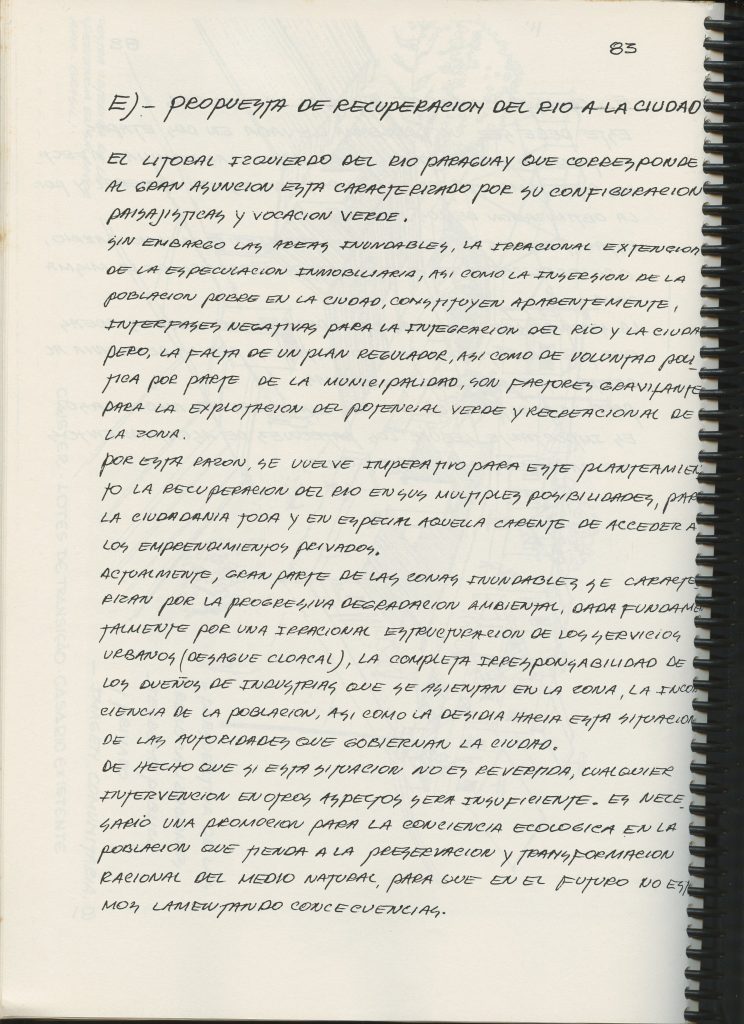 83
E).- PROPUESTA DE RECUPERACION DEL RIO A LA CIUDAD
EL LITORAL IZQUIERDO DEL RIO PARAGUAY QUE CORRESPONDE
AL GRAN ASUNCION ESTA CARACTERIZADO POR SU CONFIGURACION
PAISAJISTICAS Y VOCACION VERDE.
SIN EMBARGO LAS AREAS INUNDABLES, LA IRRACIONAL EXTENCION
DE LA ESPECULACION INMOBILIARIA, ASI COMO LA INSERSION DE LA
POBLACION POBRE EN LA CIUDAD, CONSTITUYEN APARENTEMENTE,
INTERFASES NEGATIVAS PARA LA INTEGRACION DEL RIO Y LA CIUDA
PERO, LA FALTA DE UN PLAN REGULADOR, ASI COMO DE VOLUNTAD POLI
TICA POR PARTE DE LA MUNICIPALIDAD, SON FACTORES GRAVITANTE
PARA LA EXPLOTACION DEL POTENCIAL VERDE Y RECREACIONAL DE
LA ZONA.
POR ESTA RAZON, SE VUELVE IMPERATIVO PARA ESTE PLANTEAMIEN
TO LA RECUPERACION DEL RIO EN SUS MULTIPLES POSIBILIDADES, PAR
LA CIUDADANIA TODA Y EN ESPECIAL AQUELLA CARENTE DE ACCEDER A
LOS EMPRENDIMIENTOS PRIVADOS.
ACTUALMENTE, GRAN PARTE DE LAS ZONAS INUNDABLES SE CARACTE
RIZAN POR LA PROGRESIVA DEGRADACION AMBIENTAL, DADA FUNDAME
TALMENTE POR UNA IRRACIONAL ESTRUCTURACION DE LOS SERVICIOS
URBANOS (DESAGUE CLOACAL), LA COMPLETA IRRESPONSABILIDAD DE
LOS DUEÑOS DE INDUSTRIAS QUE SE ASIENTAN EN LA ZONA, LA INCO
CIENCIA DE LA POBLACION, ASI COMO LA DESIDIA HACIA ESTA SITUACION
DE LAS AUTORIDADES QUE GOBIERNAN LA CIUDAD.
DE HECHO QUE SI ESTA SITUACION NO ES REVERTIDA, CUALQUIER
INTERVENCION EN OTROS ASPECTOS SERA INSUFICIENTE. ES NECE
SARIO UNA PROMOCION PARA LA CONCIENCIA ECOLOGICA EN LA
POBLACION QUE TIENDA A LA PRESERVACION Y TRANSFORMACION
RACIONAL DEL MEDIO NATURAL, PARA QUE EN EL FUTURO NO EST
MOS LAMENTANDO CONCECUENCIAS.